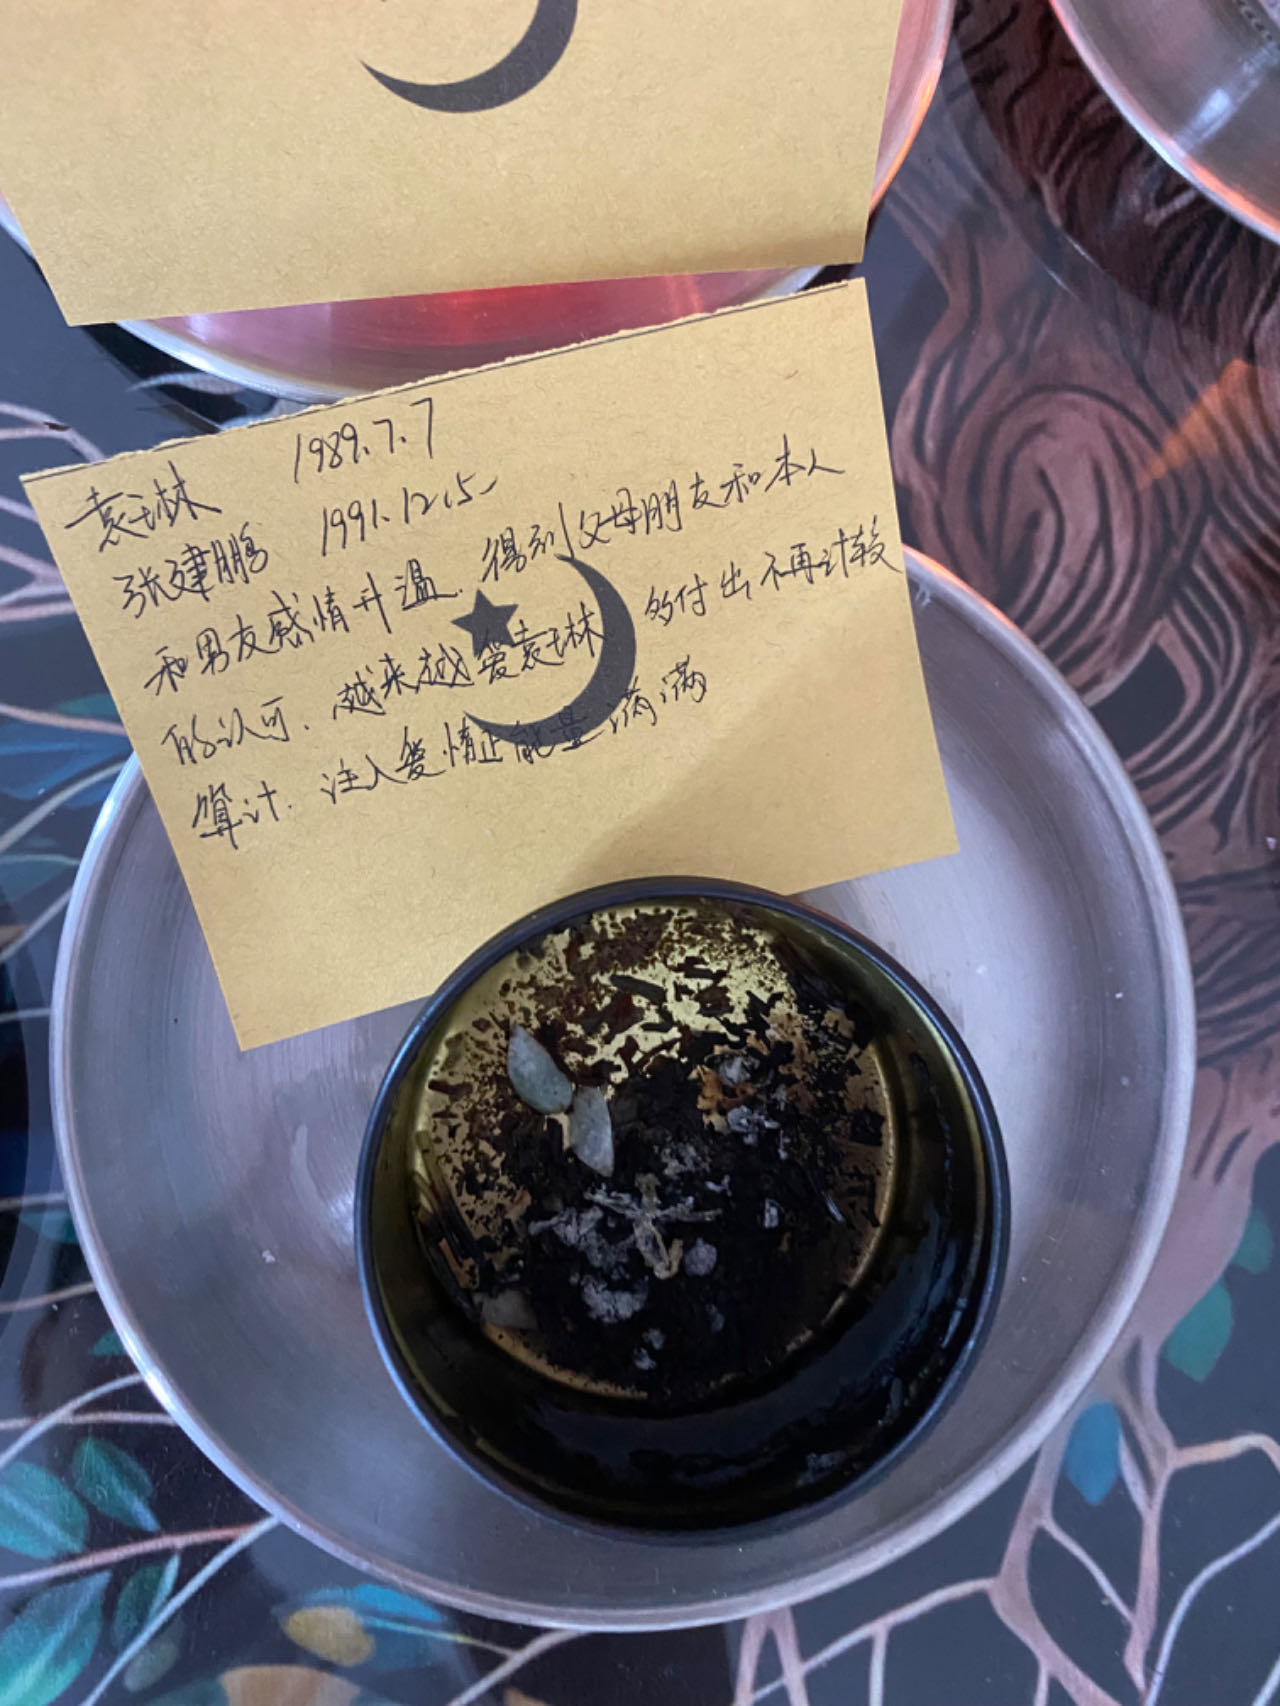 袁琳 1989.7.7
张建鹏 1991.12.5
和男友感情升温. 得到父母朋友和本人
的认可. 越来越爱袁琳 多付出不再计较
算计. 注入爱情正能量满满